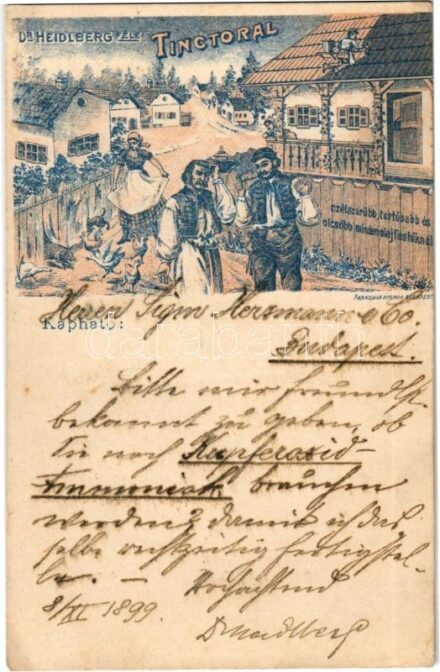 Dr. HEIDLBERG FÉLE TINCTORAL
czélszerűbb, tartósabb és
olcsóbb minden olajfestéknél
Kapható:
Herren Sigm Herzmann & Co.
Budapest.
Bitte mir freundlst
bekannt zu geben, ob
Sie noch Kupferoxid-
Ammoniak brauchen
werden? damit ich das
selbe rechtzeitig fertigstel-
le. —
Hochachtend
8/XI 1899.
Dr Heidlberg
darabanth